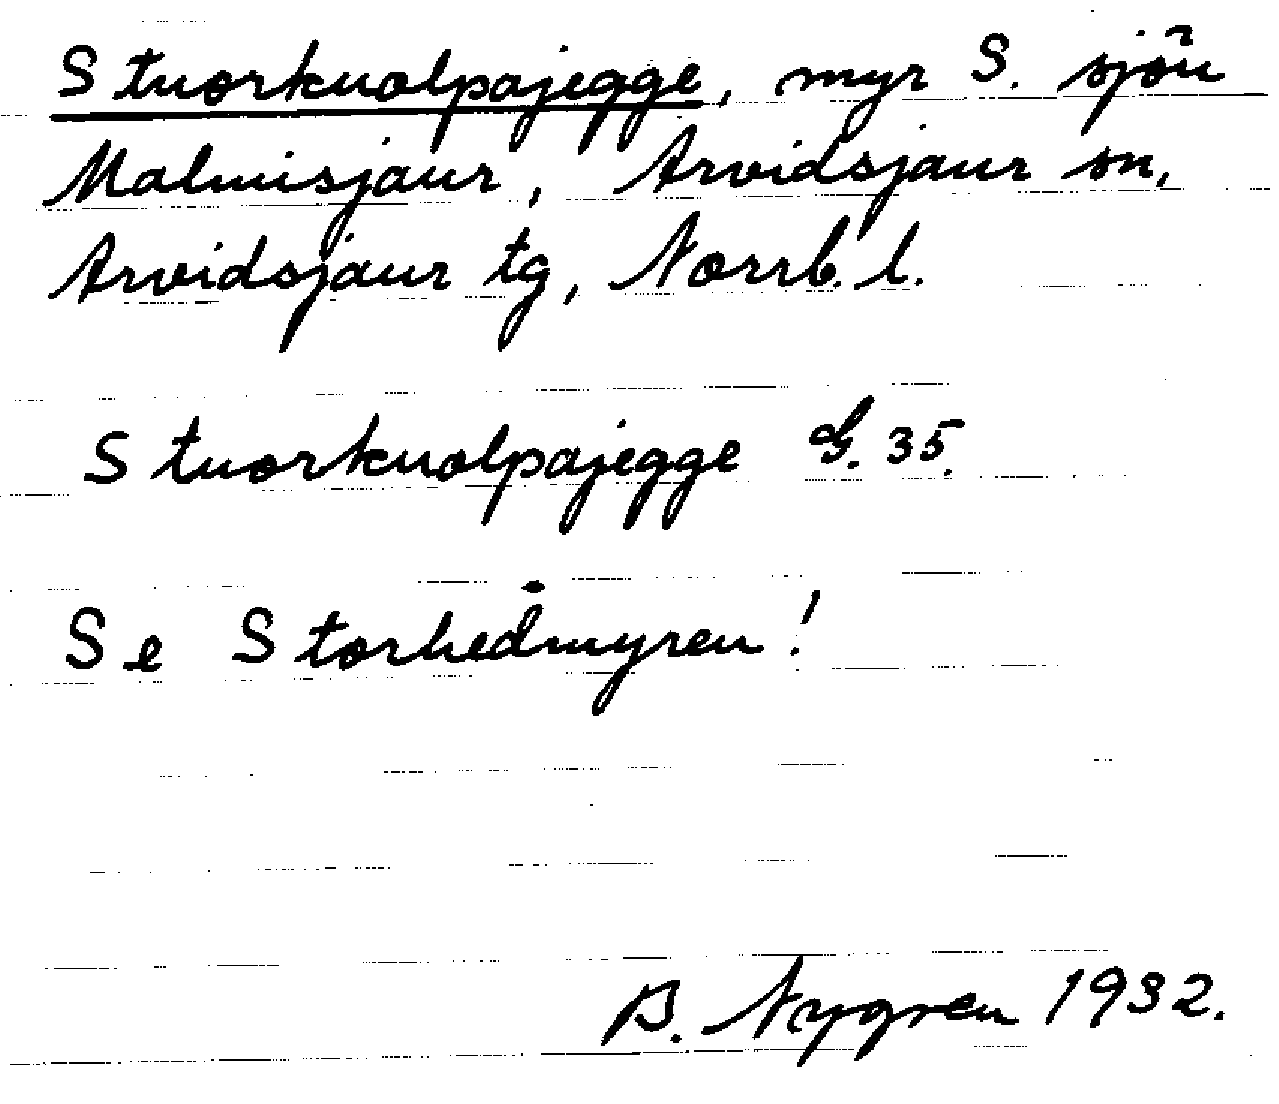 Stuorkuolpajegge, myr S. sjön
Malmisjaur, Arvidsjaur sn,
Arvidsjaur tg, Norrb. l.
Stuorkuolpajegge G. 35.
Se Storhedmyren!
B. Nygren 1932.